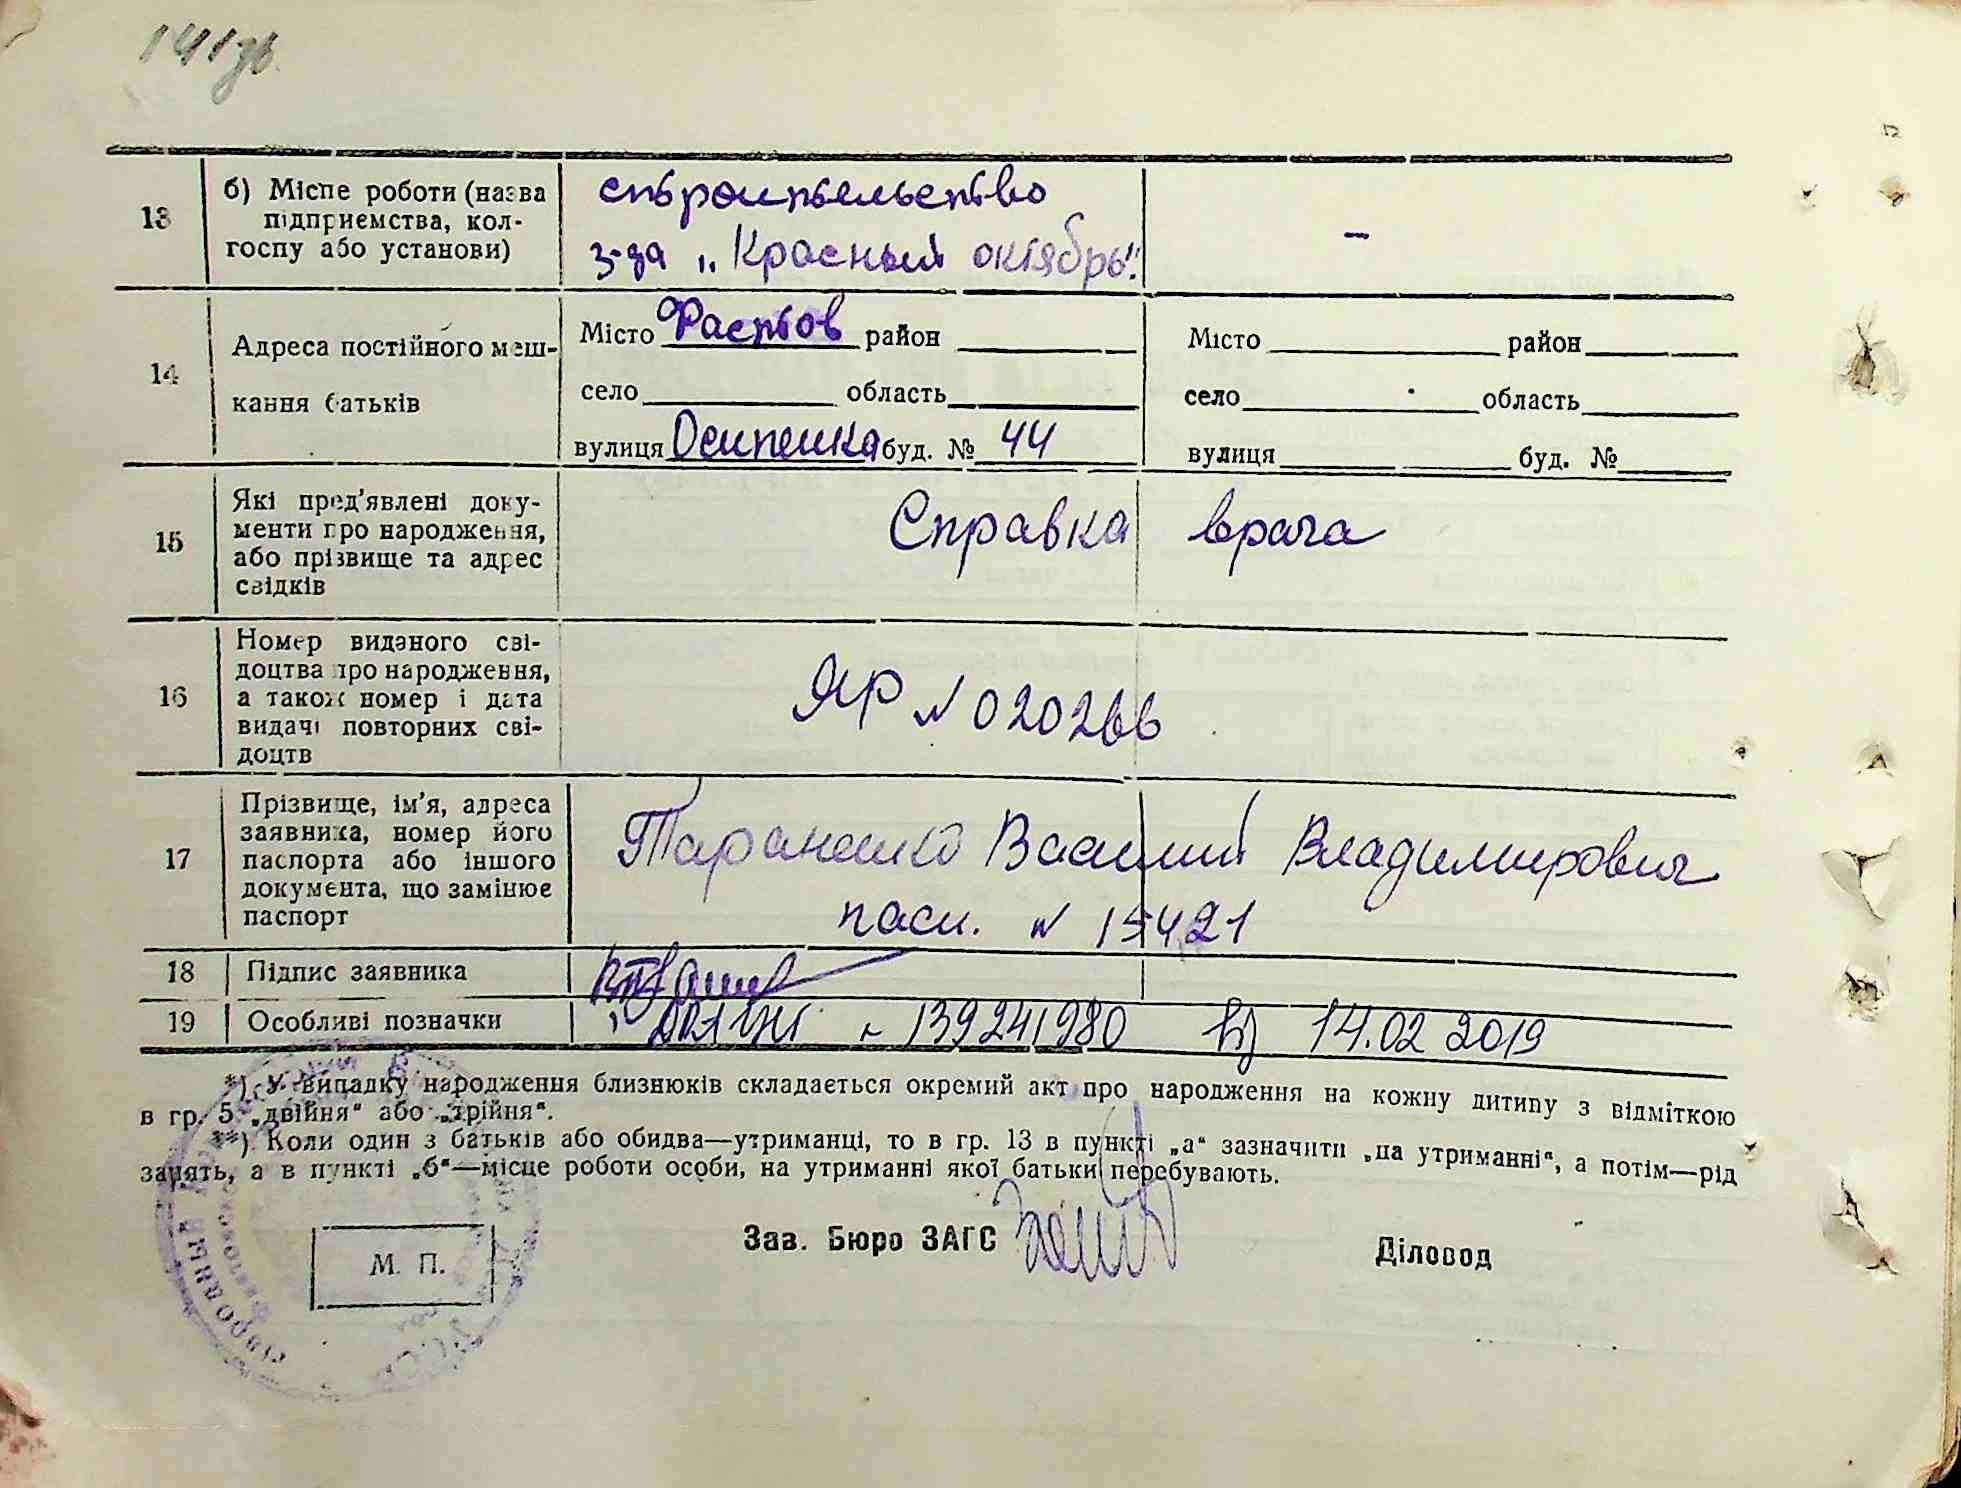 141зв.
13
б) Місце роботи (назва
підприємства, кол-
госпу або установи)
строительство
з-да „Красный октябрь".
-
14
Адреса постійного меш-
кання батьків
Місто Фастов район
село область
вулиця Осипенка буд. № 44
Місто район
село область
вулиця буд. №
15
Які пред'явлені доку-
менти про народження,
або прізвище та адрес
свідків
Справка врача
16
Номер виданого сві-
доцтва про народження,
а також номер і дата
видачі повторних сві-
доцтв
ЯР № 020266
17
Прізвище, ім'я, адреса
заявника, номер його
паспорта або іншого
документа, що замінює
паспорт
Тараненко Василий Владимирович
пасп. № 15421
18
Підпис заявника
19
Особливі позначки
ДРАЦСГ № 139241980 від 14.02 2019
*) У випадку народження близнюків складається окремий акт про народження на кожну дитину з відміткою
в гр. 5 „двійня" або „трійня".
**) Коли один з батьків або обидва—утриманці, то в гр. 13 в пункті „а" зазначити „на утриманні", а потім—рід
занять, а в пункті „б"—місце роботи особи, на утриманні якої батьки перебувають.
М. П.
Зав. Бюро ЗАГС
Діловод